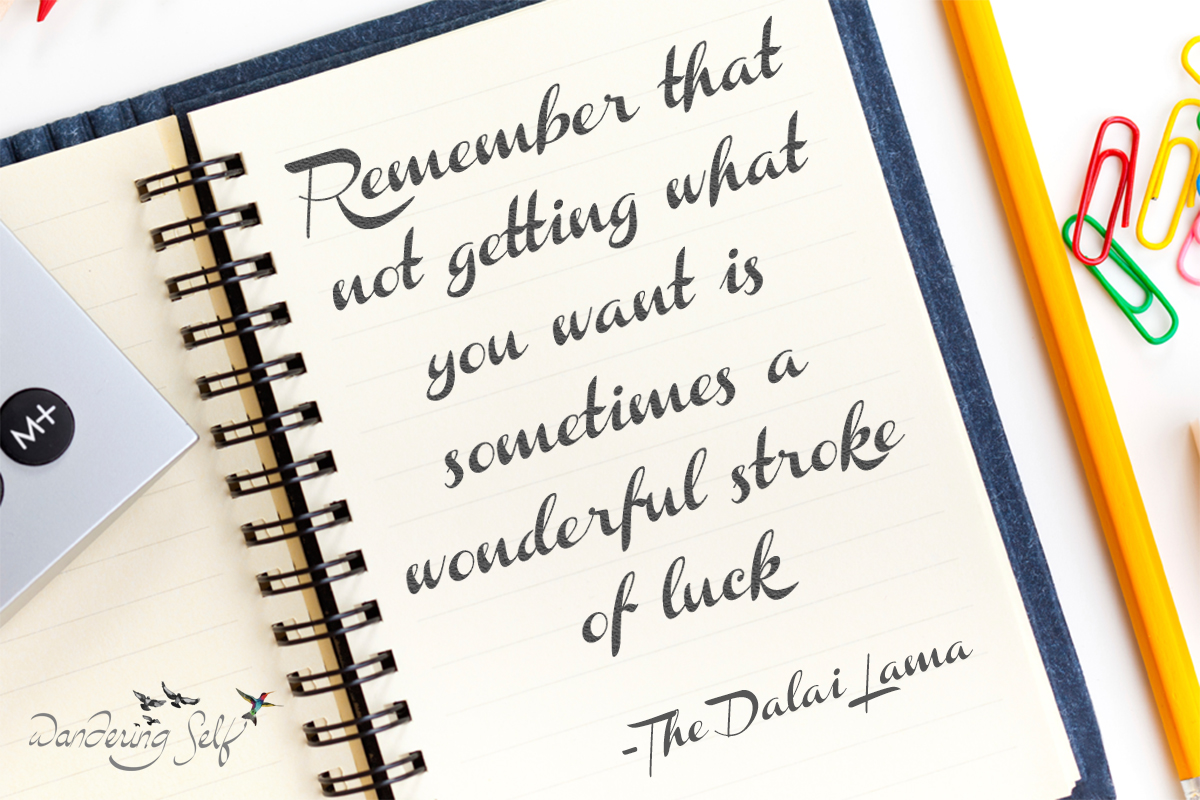 Remember that
not getting what
you want is
sometimes a
wonderful stroke
of luck
-The Dalai Lama
M+
Wandering Self